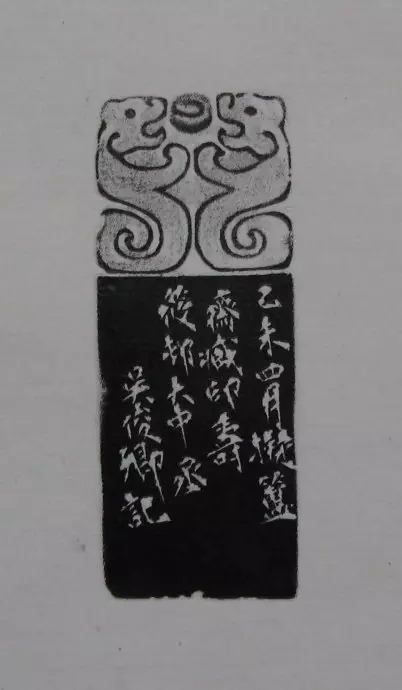 乙未四月擬簠
齋臧印壽
後邨大中丞
吳俊卿記